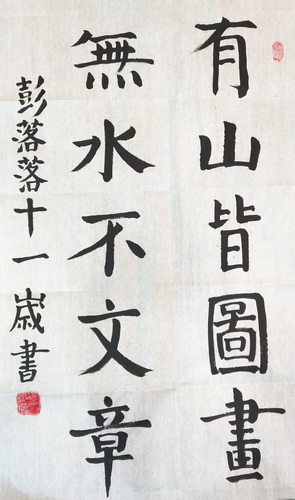 有山皆圖畫
無水不文章
彭落落十一歲書